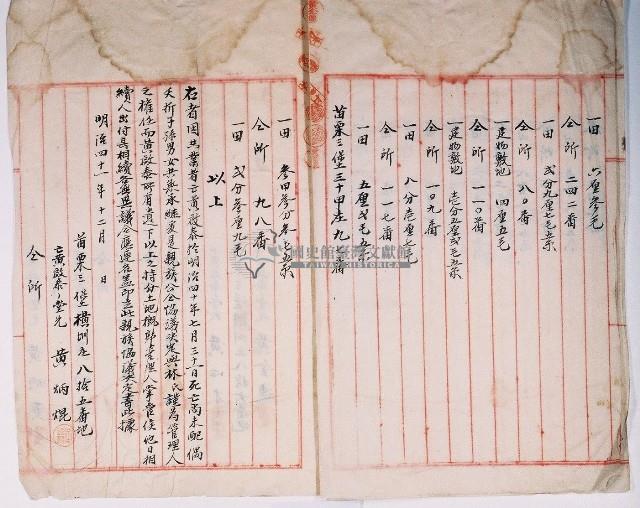 一田 六厘參毛
仝所 二四二番
一田 貳分九厘七毛五糸
仝所 八〇番
一建物敷地 四厘五毛
仝所 一一〇番
一建物敷地 壹分五厘貳毛五糸
仝所 一〇九番
一田 八分壹厘七毛
仝所 一一七番
一田 五厘貳毛五
苗栗三堡三十甲庄九 番
一田 參甲參分參毛五糸
仝所 九八番
一田 貳分參厘九毛
以上
右者因共業者亡黃啟泰於明治四十年七月三十一日死亡尚未配偶
夭折子孫男女共無承繼爰是親族公仝協議決定與林氏謹為管理人
之權任而黃啟泰所有遺下以上之持分土地概歸管理人掌管俟他日相
續人出付具相續各無異議合應連名蓋印立此親族協議決定書此據
明治四十一年十二月 日
苗栗三堡 庄八拾五番地
亡黃啟泰堂兄 黃炳焜
仝所
國史館臺灣文獻館
TAIWAN HISTORICA